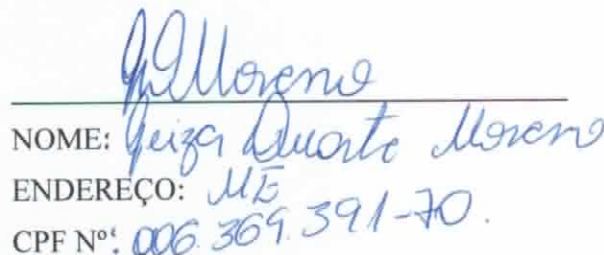 GDMoreno
NOME: Geiza Duarte Moreno
ENDEREÇO: ME
CPF Nº: 006.369.391-70.